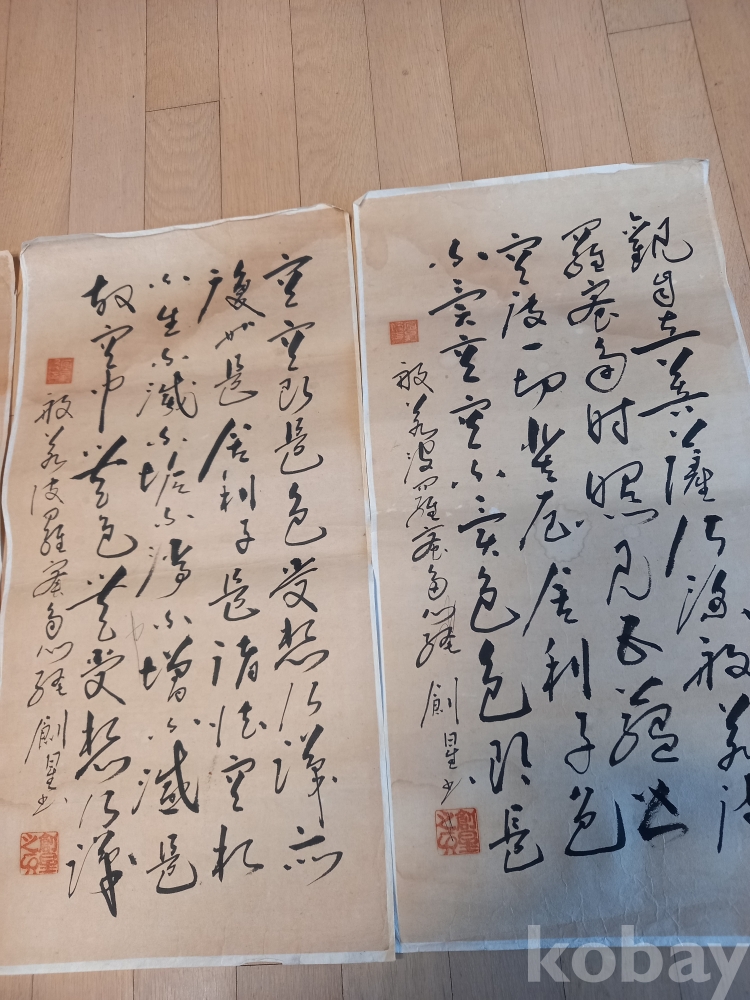 觀自在菩薩行深般若波
羅蜜多時照見五蘊皆
空度一切苦厄舍利子色
不異空空不異色色即是
般若波羅蜜多心經 創星書
空空即是色受想行識亦
復如是舍利子是諸法空相
不生不滅不垢不淨不增不減是
故空中無色無受想行識
般若波羅蜜多心經 創星書
kobay